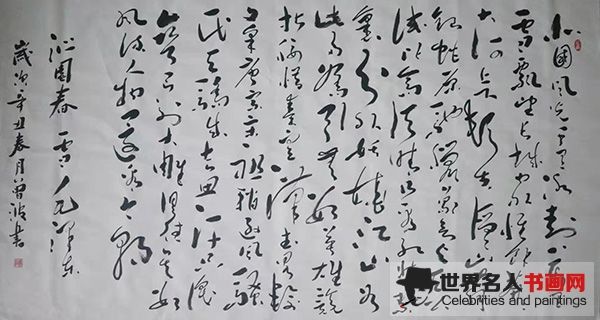 北国风光千里冰封万里
雪飘望长城内外惟余莽莽
大河上下顿失滔滔山舞
银蛇原驰蜡象欲与天公
试比高须晴日看红装素
裹分外妖娆江山如
此多娇引无数英雄竞
折腰惜秦皇汉武略输
文采唐宗宋祖稍逊风骚
一代天骄成吉思汗只识
弯弓射大雕俱往矣数
风流人物还看今朝
沁园春 雪 毛泽东
岁次辛丑春月曾波书
世界名人书画网
Celebrities and paintings